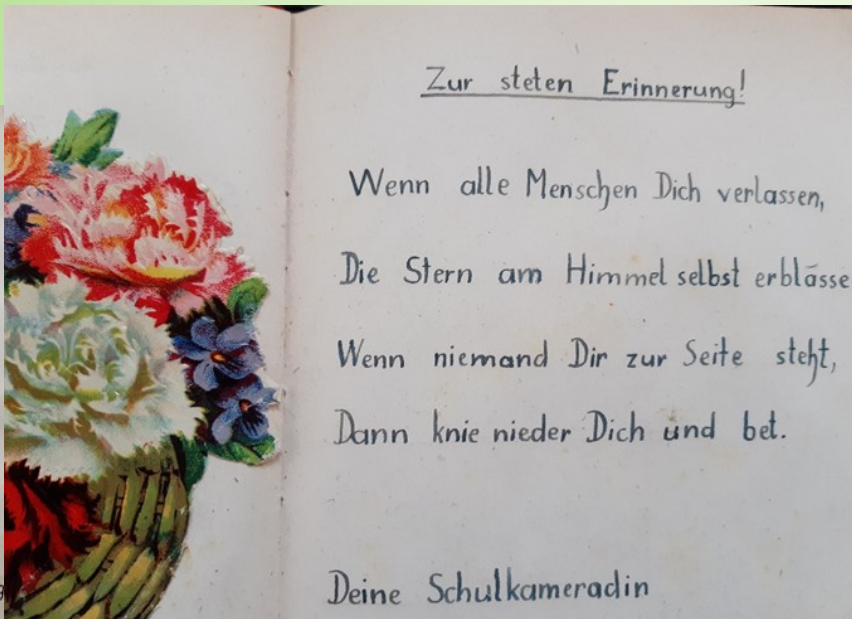 Zur steten Erinnerung!
Wenn alle Menschen Dich verlassen,
Die Stern am Himmel selbst erblasse
Wenn niemand Dir zur Seite steht,
Dann knie nieder Dich und bet.
Deine Schulkameradin